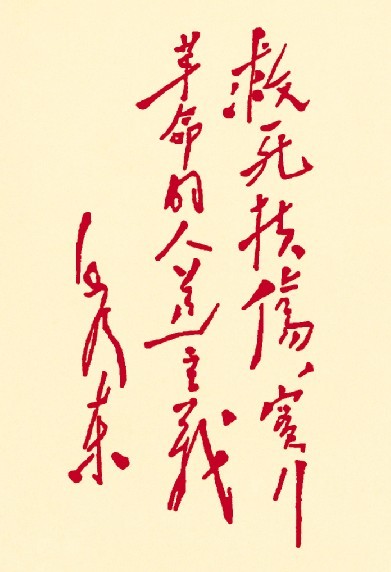 救死扶傷、實行
革命的人道主義
毛澤東